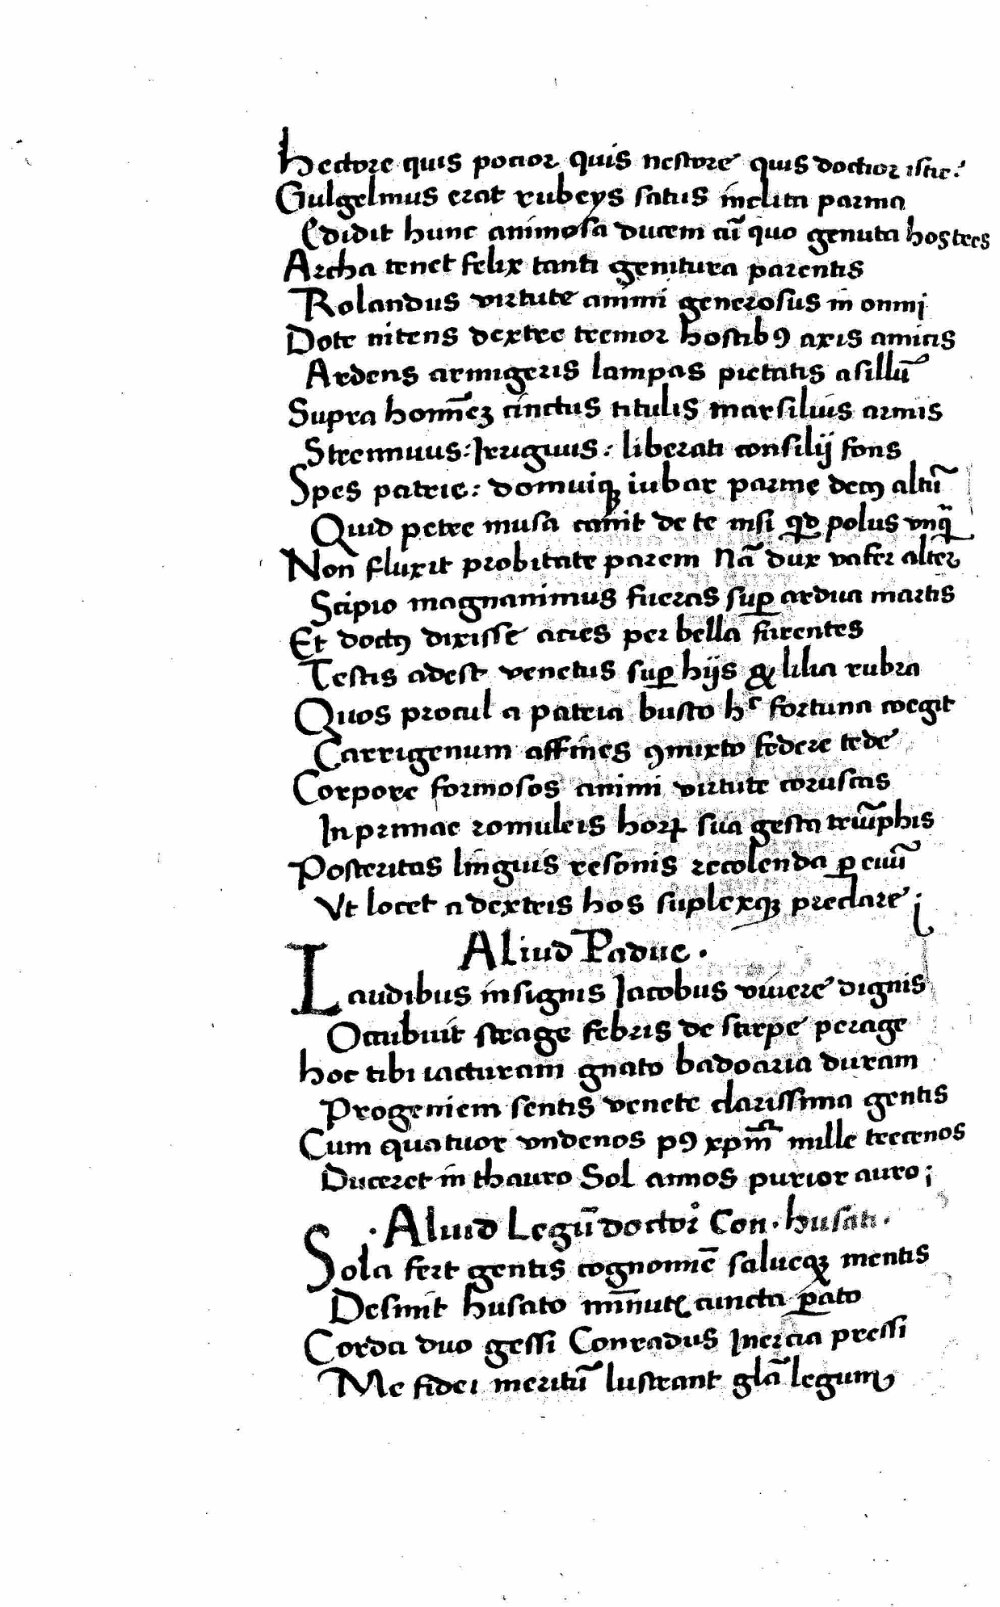 Hectore quis pocior quis nestore quis doctior istic?
Gulgelmus erat rubeys satus inclita parma
Edidit hunc animosa ducem cū quo genuta hostes
Archa tenet felix tanti genitura parentis
Rolandus virtute animi generosus in omni
Dote nitens dextre tremor hostibꝰ axis amicis
Ardens armigeris lampas pietatis asillū
Supra homēꝫ cinctus titulis marsilius armis
Strennuus: Irriguus: liberati consilij fons
Spes patrie: domuiqꝫ iubar parme decꝰ altū
Quid petre musa canit de te nisi qd̄ polus vnq̄
Non fluxit probitate parem Nā dux vafer alter
Scipio magnanimus fueras suꝑ ardua martis
Et doctꝰ dixisse acies per bella furentes
Testis adest venetus suꝑ hijs lilia rubra
Quos procul a patria busto hᶜ fortuna coegit
Carrigenum affines ꝯmixto federe tede
Corpore formosos animi virtute coruscas
In prunae romuleis horꝝ sua gesta triūphis
Posteritas linguis resonis recolenda ꝑ euū
Vt locet a dextris hos suplexqꝫ preclare;
Aliud Padue.
Laudibus insignis Jacobus viuere dignis
Occubuit strage febris de stirpe perage
Hoc tibi iacturam gnato badoaria duram
Progeniem sentis venete clarissima gentis
Cum quatuor vndenos pꝰ xp̄m mille trecenos
Duceret in thauro Sol annos purior auro;
.Aliud Legū doctorͦ Con. husati.
Sola fert gentis cognomē salueqꝫ mentis
Desinit husato cuncta ꝑato
Corda duo gessi Conradus Inercia pressi
Me fidei meritū lustrant glā legum